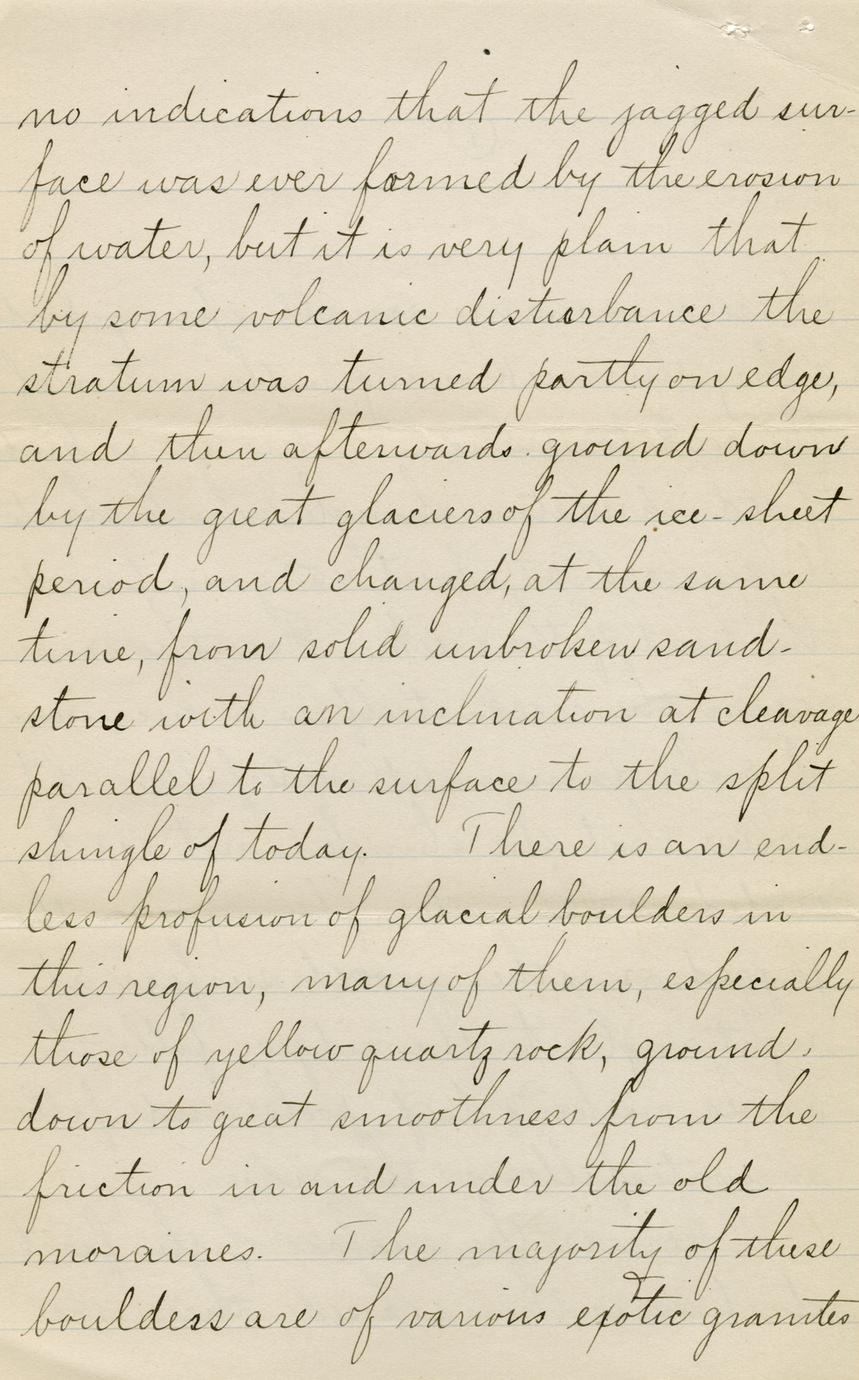 no indications that the jagged sur-
face was ever formed by the erosion
of water, but it is very plain that
by some volcanic disturbance the
stratum was turned partly on edge,
and then afterwards ground down
by the great glaciers of the ice-sheet
period, and changed, at the same
time, from solid unbroken sand-
stone with an inclination at cleavage
parallel to the surface to the split
shingle of today. There is an end-
less profusion of glacial boulders in
this region, many of them, especially
those of yellow quartz rock, ground
down to great smoothness from the
friction in and under the old
moraines. The majority of these
boulders are of various exotic granites